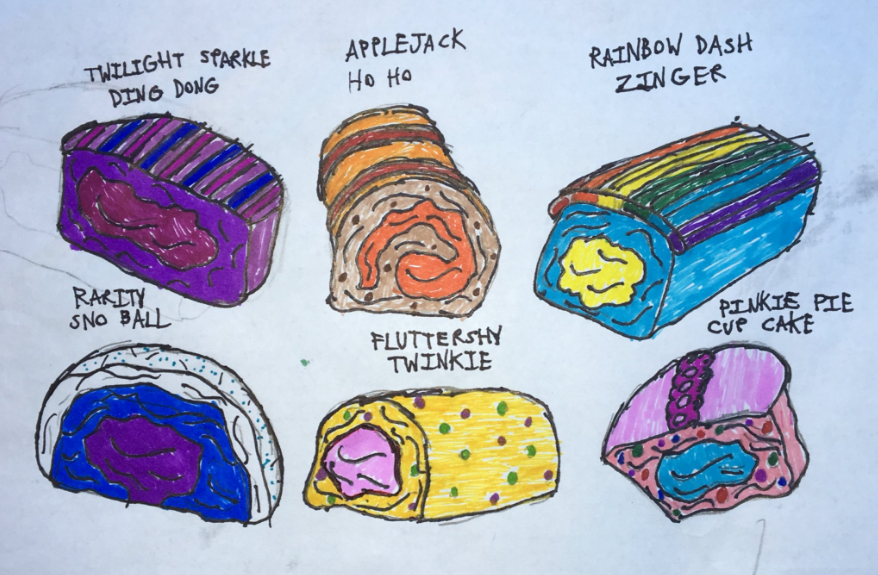 TWILIGHT SPARKLE
DING DONG
APPLEJACK
HO HO
RAINBOW DASH
ZINGER
RARITY
SNO BALL
FLUTTERSHY
TWINKIE
PINKIE PIE
CUP CAKE